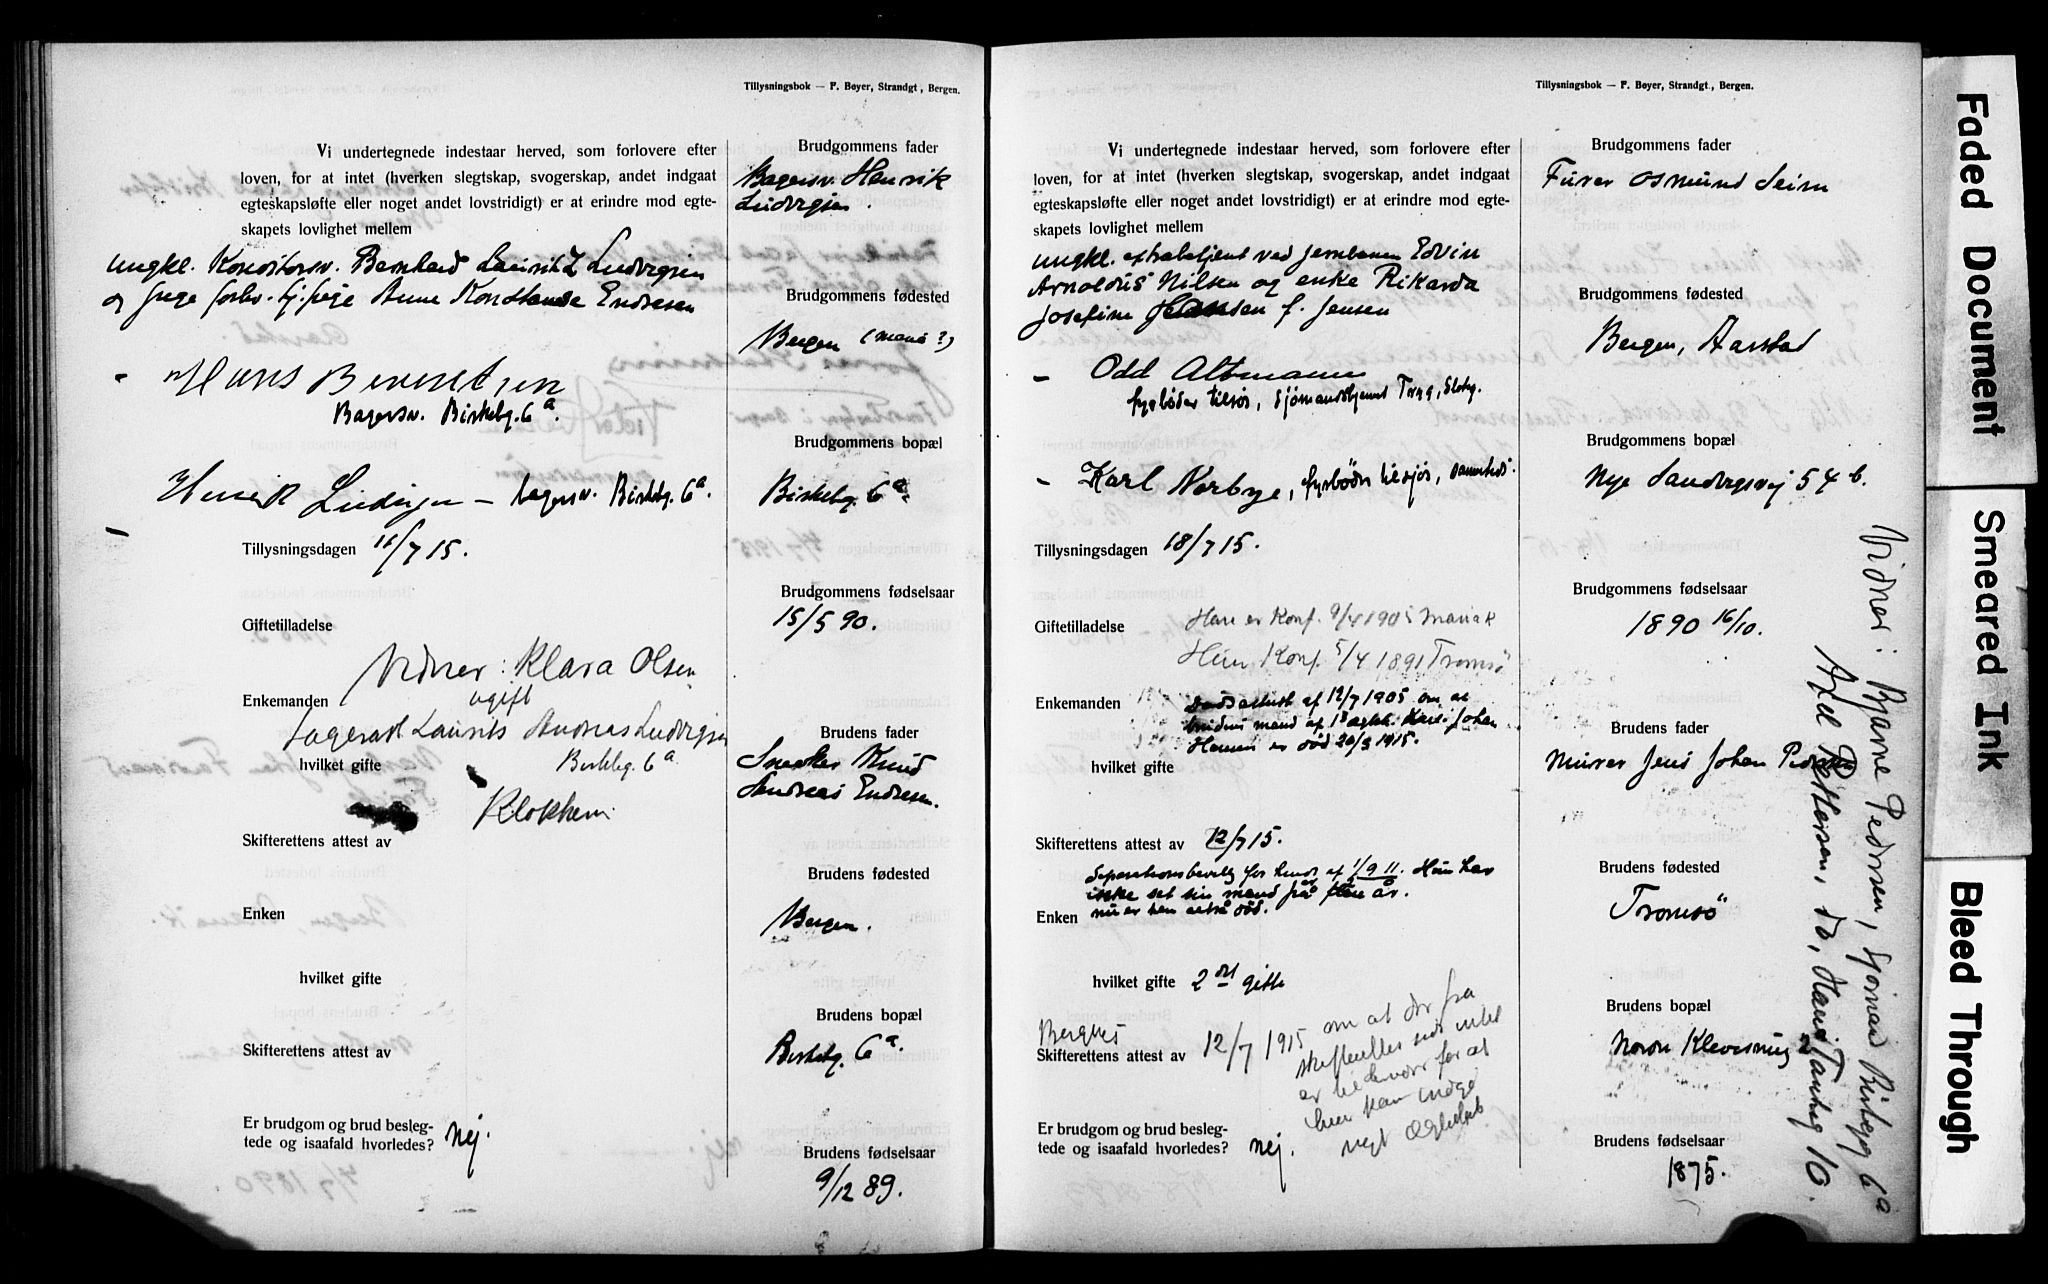 Tillysningsbok — F. Bøyer, Strandgt, Bergen.
Vi undertegnede indestaar herved, som forlovere efter
loven, for at intet (hverken slegtskap, svogerskap, andet indgaat
egteskapsløfte eller noget andet lovstridigt) er at erindre mod egte-
skapets lovlighet mellem
ungkl. Konditorsv. Bernhard Laurits Ludvigsen
og pige forhv. tj. pige Anne Konstanse Endresen
Hans Berentsen
Bagersv. Birkebg. 6a.
Henrik Ludvigsen — bagersv. Birkebg. 6a.
Tillysningsdagen 11/7 15.
Giftetilladelse
Vidner: Klara Olsen
Enkemanden
ugift
Laurits Andreas Ludvigsen
hvilket gifte
Birkebg. 6a
Klokkeren
Skifterettens attest av
Enken
hvilket gifte
Skifterettens attest av
Er brudgom og brud besleg-
tede og isaafald hvorledes? Nej.
Brudgommens fader
Bagersv. Henrik
Ludvigsen.
Brudgommens fødested
Bergen (Maria?)
Brudgommens bopæl
Birkebg. 6a.
Brudgommens fødselsaar
15/5 90.
Brudens fader
Snedker Knud
Andreas Endresen.
Brudens fødested
Bergen.
Brudens bopæl
Birkebg. 6a.
Brudens fødselsaar
9/12 89.
Tillysningsbok — F. Bøyer, Strandgt., Bergen.
Vi undertegnede indestaar herved, som forlovere efter
loven, for at intet (hverken slegtskap, svogerskap, andet indgaat
egteskapsløfte eller noget andet lovstridigt) er at erindre mod egte-
skapets lovlighet mellem
ungkl. extrabetjent ved jernbanen Edvin
Arnoldus Nilsen og enke Rikarda
Josefine Hansen f. Jensen
Odd Altmann
fyrbøder tilsjøs, Sjømandshjemmet Torgg,
Karl Norbye, fyrbøder tilsjøs, sammesteds.
Tillysningsdagen 18/7 15.
Giftetilladelse
Han er Konf. 9/4 1905 Mariak
Hun Konf. 5/4 1891 Tromsø
Enkemanden
Dødsattest af 12/7 1905 om at
brudens mand af 1ste ægtsk. Karl Johan
Hansen er død 20/3 1915.
hvilket gifte
Skifterettens attest av 12/7 15.
Separationsbevilg for hende af 1/9 11. Hun har
ikke set sin mand på flere år.
nu er han altså død.
Enken
hvilket gifte 2det gifte
Bergens
Skifterettens attest av 12/7 1915 om at der fra
skifterettens side intet
er til hinder for at
hun kan indgå
nyt ægteskab
Er brudgom og brud besleg-
tede og isaafald hvorledes? Nej.
Brudgommens fader
Furer Osmund Seim
Brudgommens fødested
Bergen, Aarstad
Brudgommens bopæl
Nye Sandvigsvej 54 b.
Brudgommens fødselsaar
1890 16/10.
Brudens fader
Murer Jens Johan Pedersen
Brudens fødested
Tromsö
Brudens bopæl
Nordre
Brudens fødselsaar
1875.
Vidner: Bjarne Pedersen, sjømand Birkebg 6a
Axel Pettersen, do, Hans Tanksg 10.
Faded Document
Smeared Ink
Bleed Through